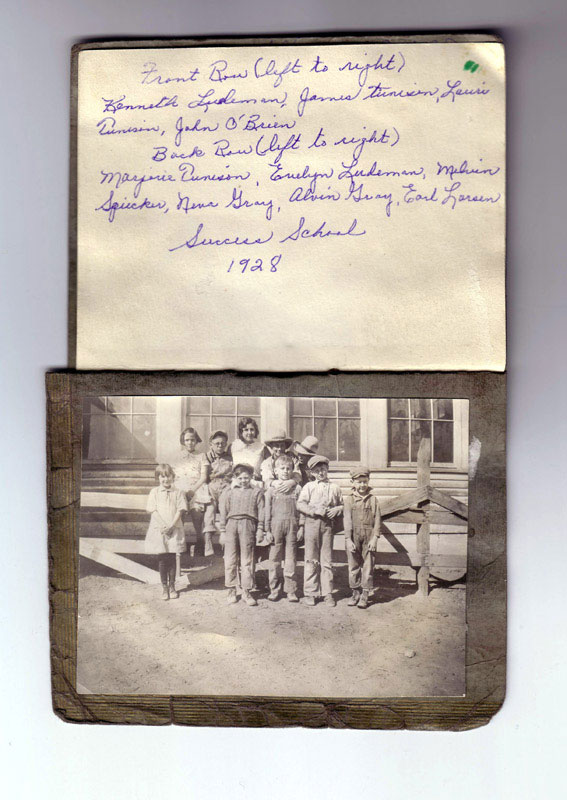 Front Row (left to right)
Kenneth Ludeman, James Tunison, Lauri
Tunison, John O'Brien
Back Row (left to right)
Marjorie Tunison, Evelyn Ludeman, Melvin
Spucker, Neva Gray, Alvin Gray, Earl Larsen
Success School
1928